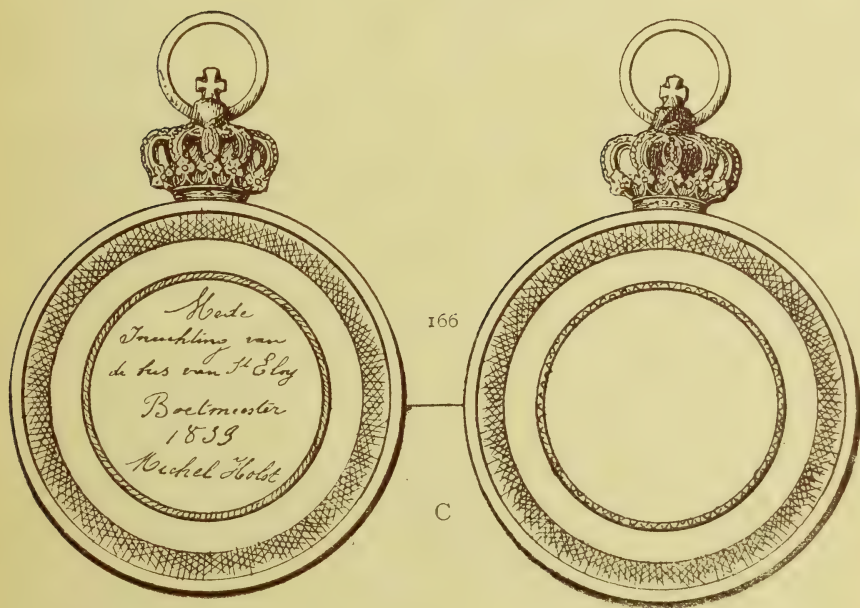 Mede
Inrichting van
de bus van St Eloy
Boetmeester
1839
Michel Holst
166
C